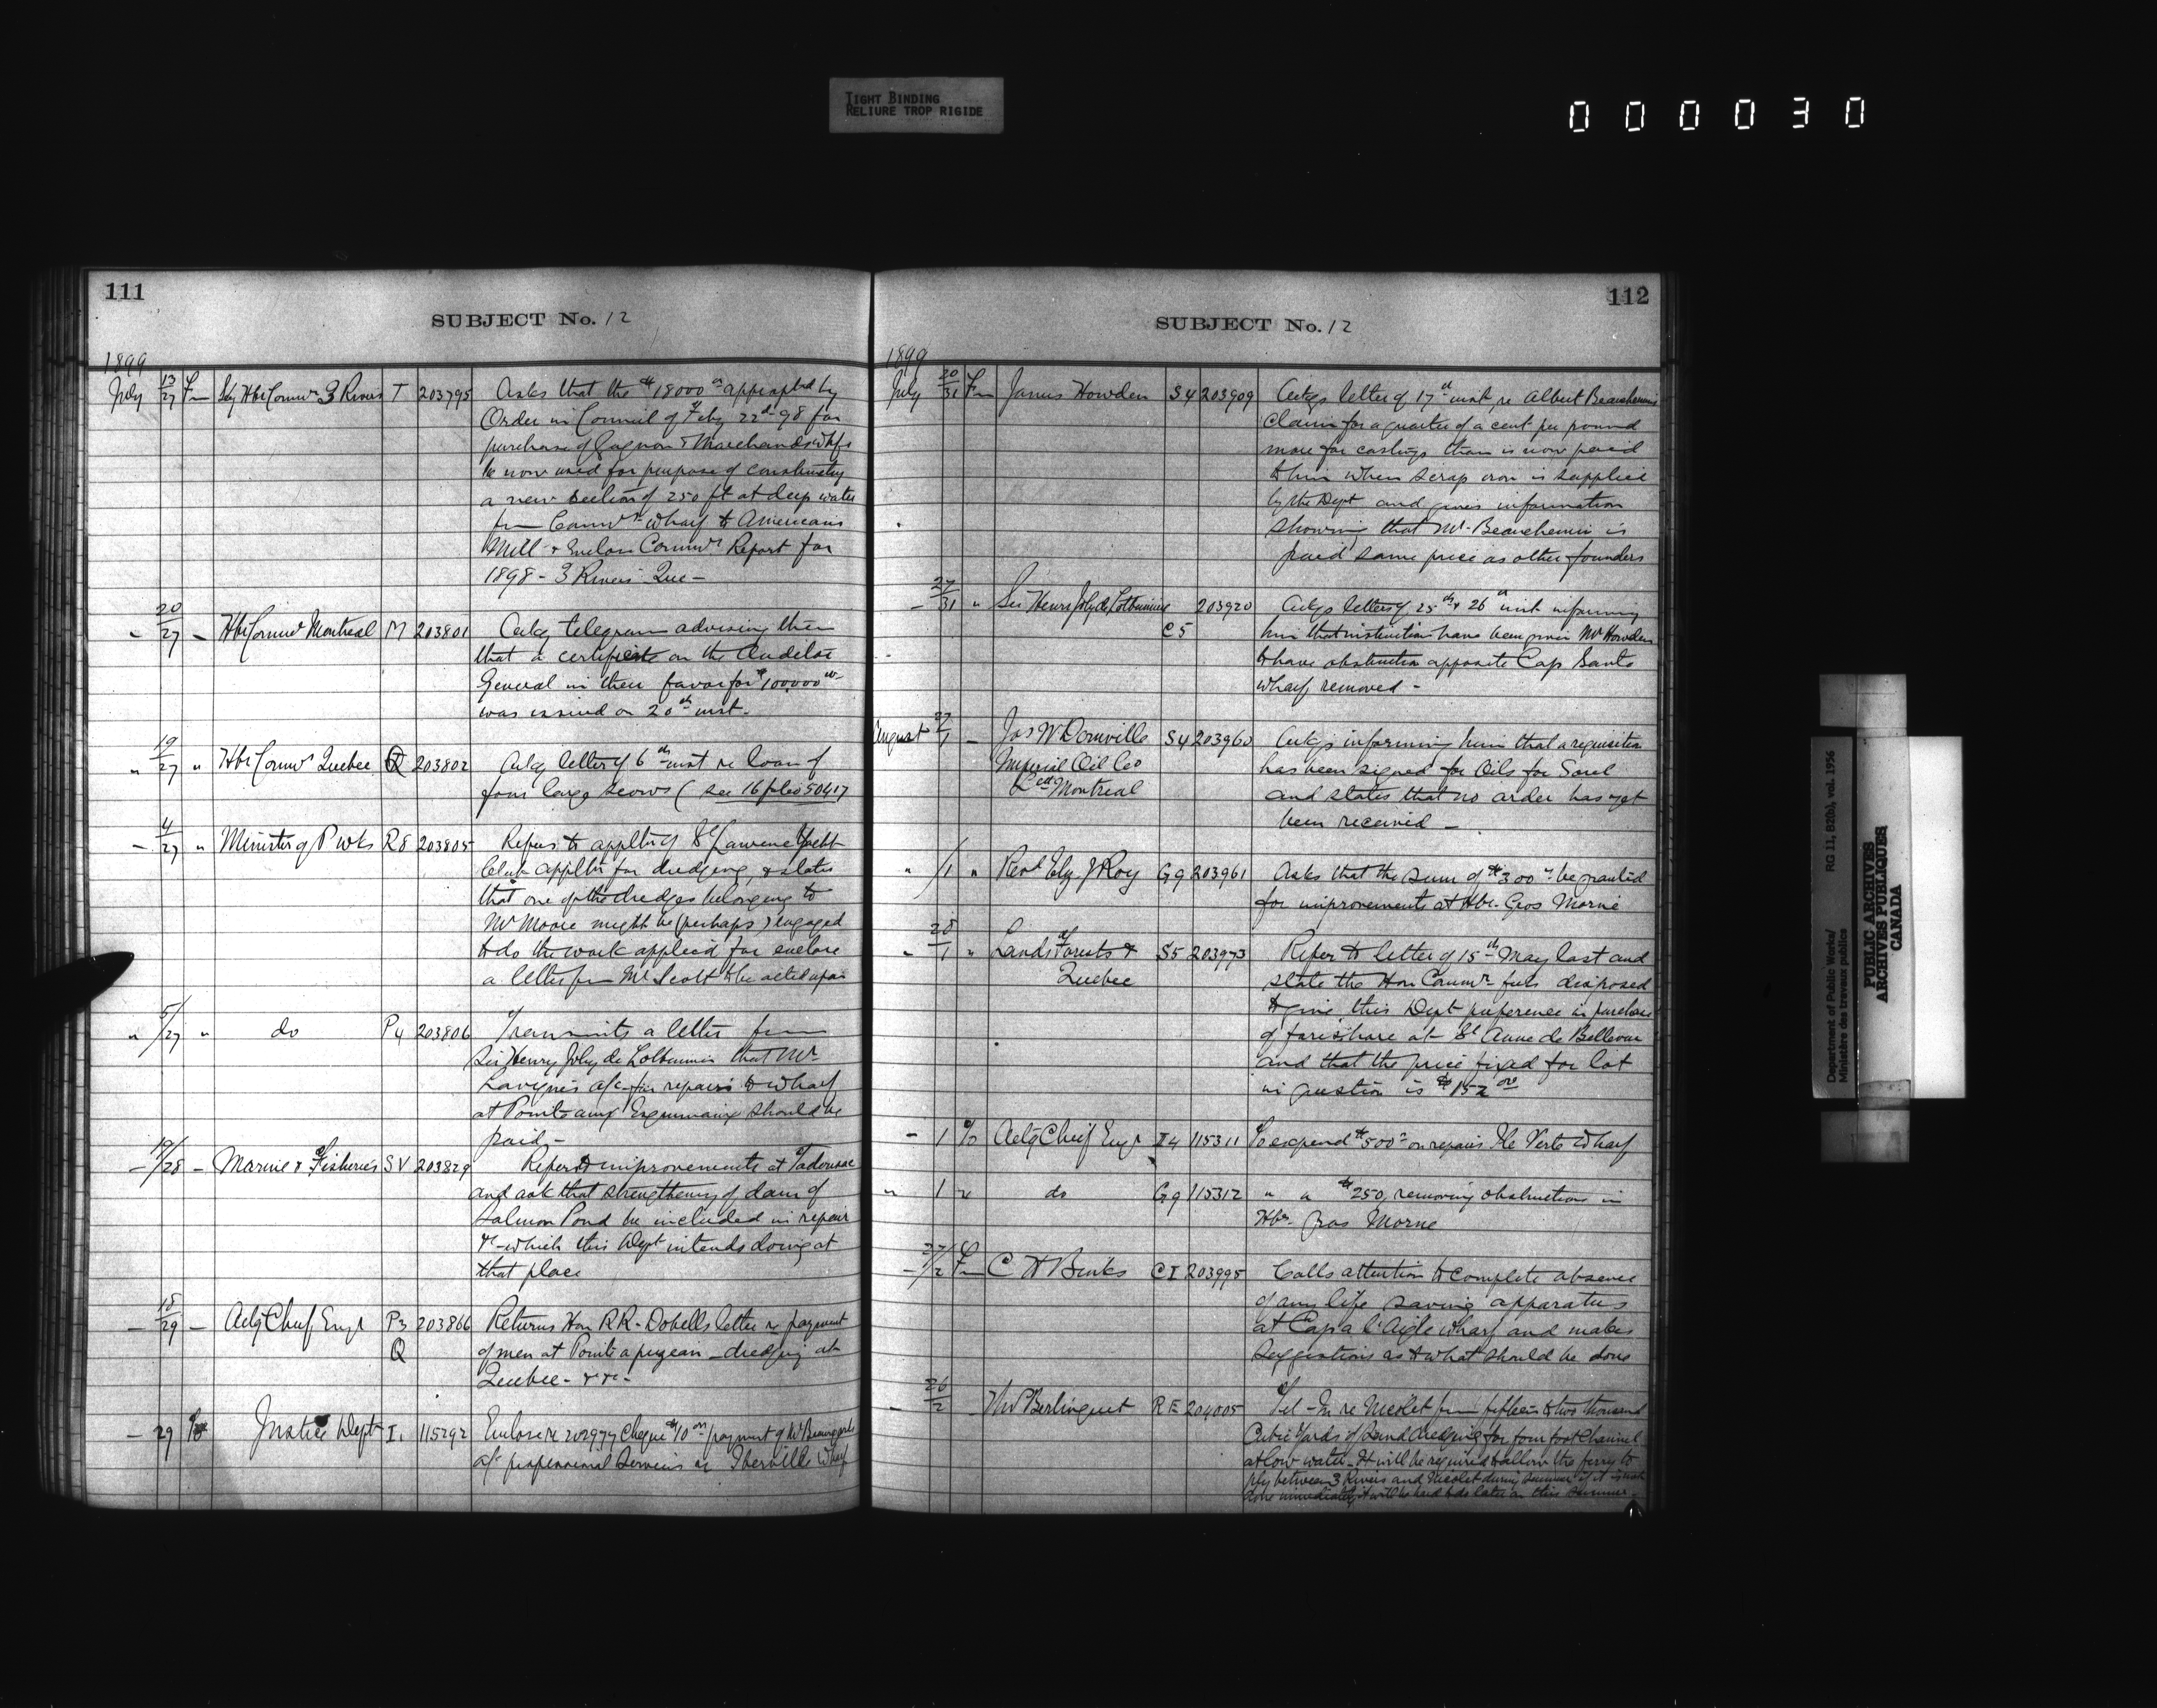 TIGHT BINDING
RELIURE TROP RIGIDE
000030
111
SUBJECT No. 12
1899
July 13/27 Fm Sy Hbr Comrs 3 Rivers T 203795 Asks that the $18000 00 appropted by
Order in Council of Feby 22d 98 for
purchase of Gagnon & Marchands whfs
be now used for purpose of constructg
a new section of 250 ft at deep water
fm Comrs wharf to Americans
Mill & Enclose Comrs Report for
1898 - 3 Rivers Que -
" 20/27 - Hbr Comrs Montreal M 203801 Ackg telegram advising them
that a certificate on the Auditor
General in their favor for $100,000 00
was issued on 20th inst.
" 19/27 " Hbr Comrs Quebec Q 203802 Ackg letter of 6th inst re loan of
four large scows (see 16 folio 50417
- 4/27 " Minister of P Wks R8 203805 Refers to appltn of St Lawrence Yacht
Club appltn for dredging, & states
that one of the dredges belonging to
Mr Moore might be (perhaps) engaged
to do the work applied for enclose
a letter fm Mr Scott to be acted upon
" 5/27 " do P4 203806 Transmits a letter from
Sir Henry Joly de Lotbiniere that Mr
Lavigne's a/c for repairs to wharf
at Pointe aux Esquimaux should be
paid -
- 19/28 - Marine & Fisheries SV 203829 Refers to improvements at Tadousac
and ask that strengthening of dam of
Salmon Pond be included in repair
&c which this Dept intends doing at
that place
- 18/29 - Actg Chief Engr P3 203866 Returns Hon R R Dobells letter re payment
Q of men at Pointe a pizeau - dredging at
Quebec - &c -
- 29 To Justice Dept I1 115292 Enclose re 202977 Cheque $10 00 payment of Mr
a/c professional Services re Iberville Wharf
112
SUBJECT No. 12
1899
July 20/31 Fm James Howden S4 203909 Ackgs letter of 17th inst, re Albert Beauchemins
claim for a quarter of a cent per pound
more for castings than is now paid
to him when scrap iron is supplied
by the Dept and gives information
showing that Mr. Beauchemin is
paid same price as other founders
- 27/31 " Sir Henri Joly de Lotbiniere 203920 Ackgs letters of 25th & 26th inst informing
C5 him that instruction have been given Mr Howden
to have obstruction opposite Cap Santé
wharf removed -
August 27/1 - Jas W Domville S4 203960 Ackgs informing him that a requisition
Imperial Oil Co has been signed for Oils for Sorel
Ltd Montreal and states that no order has yet
been received -
" /1 " Revd Elz. J Roy G9 203961 Asks that the sum of $300 00 be granted
for improvements at Hbr. Gros Morne
" 28/1 " Lands Forests & S5 203973 Refer to letter of 15th May last and
Quebec state the Hon Comr feels disposed
to give this Dept preference in purchase
of foreshore at St Anne de Bellevue
and that the price fixed for lot
in question is $152 00
- 1 To Actg Chief Engr I4 115311 To expend $500 00 on repairs Ile Verte Wharf
" 1 " do G9 115312 " " $250, removing obstructions in
Hbr. Gros Morne
- 27/2 Fm C H Binks C I 203995 Calls attention to complete absence
of any life saving apparatus
at Cap a l'Aigle wharf and makes
suggestions as to what should be done
- 26/2 Thos P Berlinguet R E 204005 Tel - In re Nicolet from fifteen to two thousand
Cubic Yards of Sand dredging for four foot Channel
at low water - It will be required to allow the ferry to
ply between 3 Rivers and Nicolet during summer if it is not
done immediately it will be hard to do later on this summer.
Department of Public Works/ RG 11, B2(b), vol. 1956
Ministère des travaux publics
PUBLIC ARCHIVES
ARCHIVES PUBLIQUES
CANADA